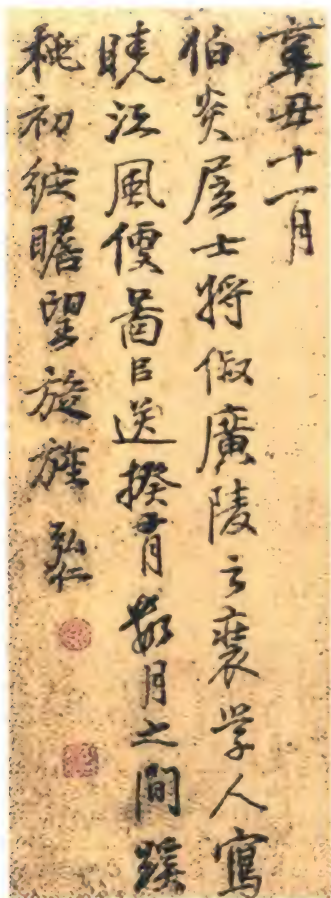 辛丑十一月
伯炎居士將俶廣陵之裝學人寫
曉江風便啚㠯送揆有數月之間蹊
桃初綻瞻望旋旌 弘仁